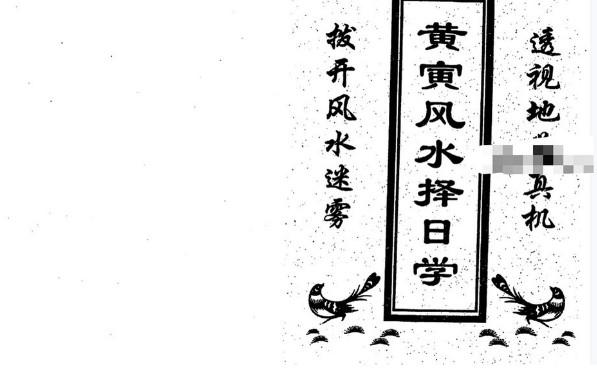 透视地机
黄寅风水择日学
拨开风水迷雾